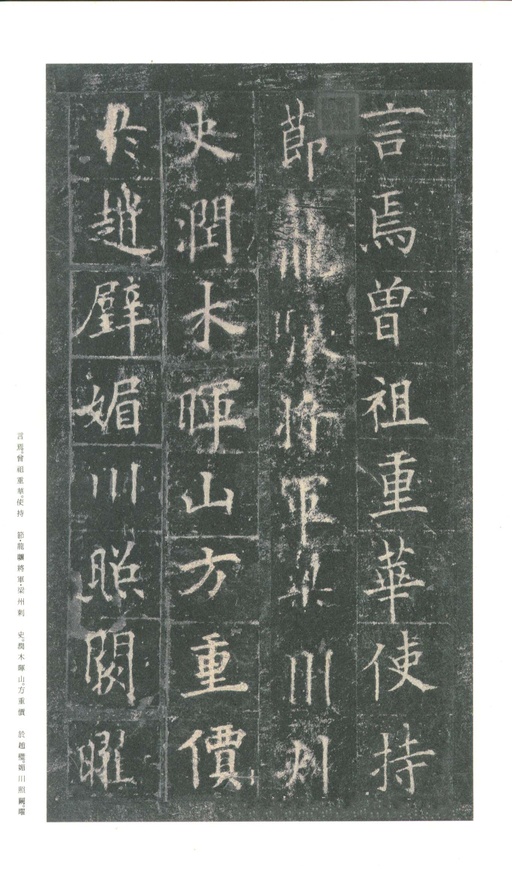 言焉曾祖重華使持
節龍驤將軍梁州刺
史潤木暉山方重價
於趙璧媚川照闕曜
言焉。曾祖重華。使持　節・龍驤將軍・梁州刺　史。潤木暉山。方重價　於趙璧。媚川照闕。曜